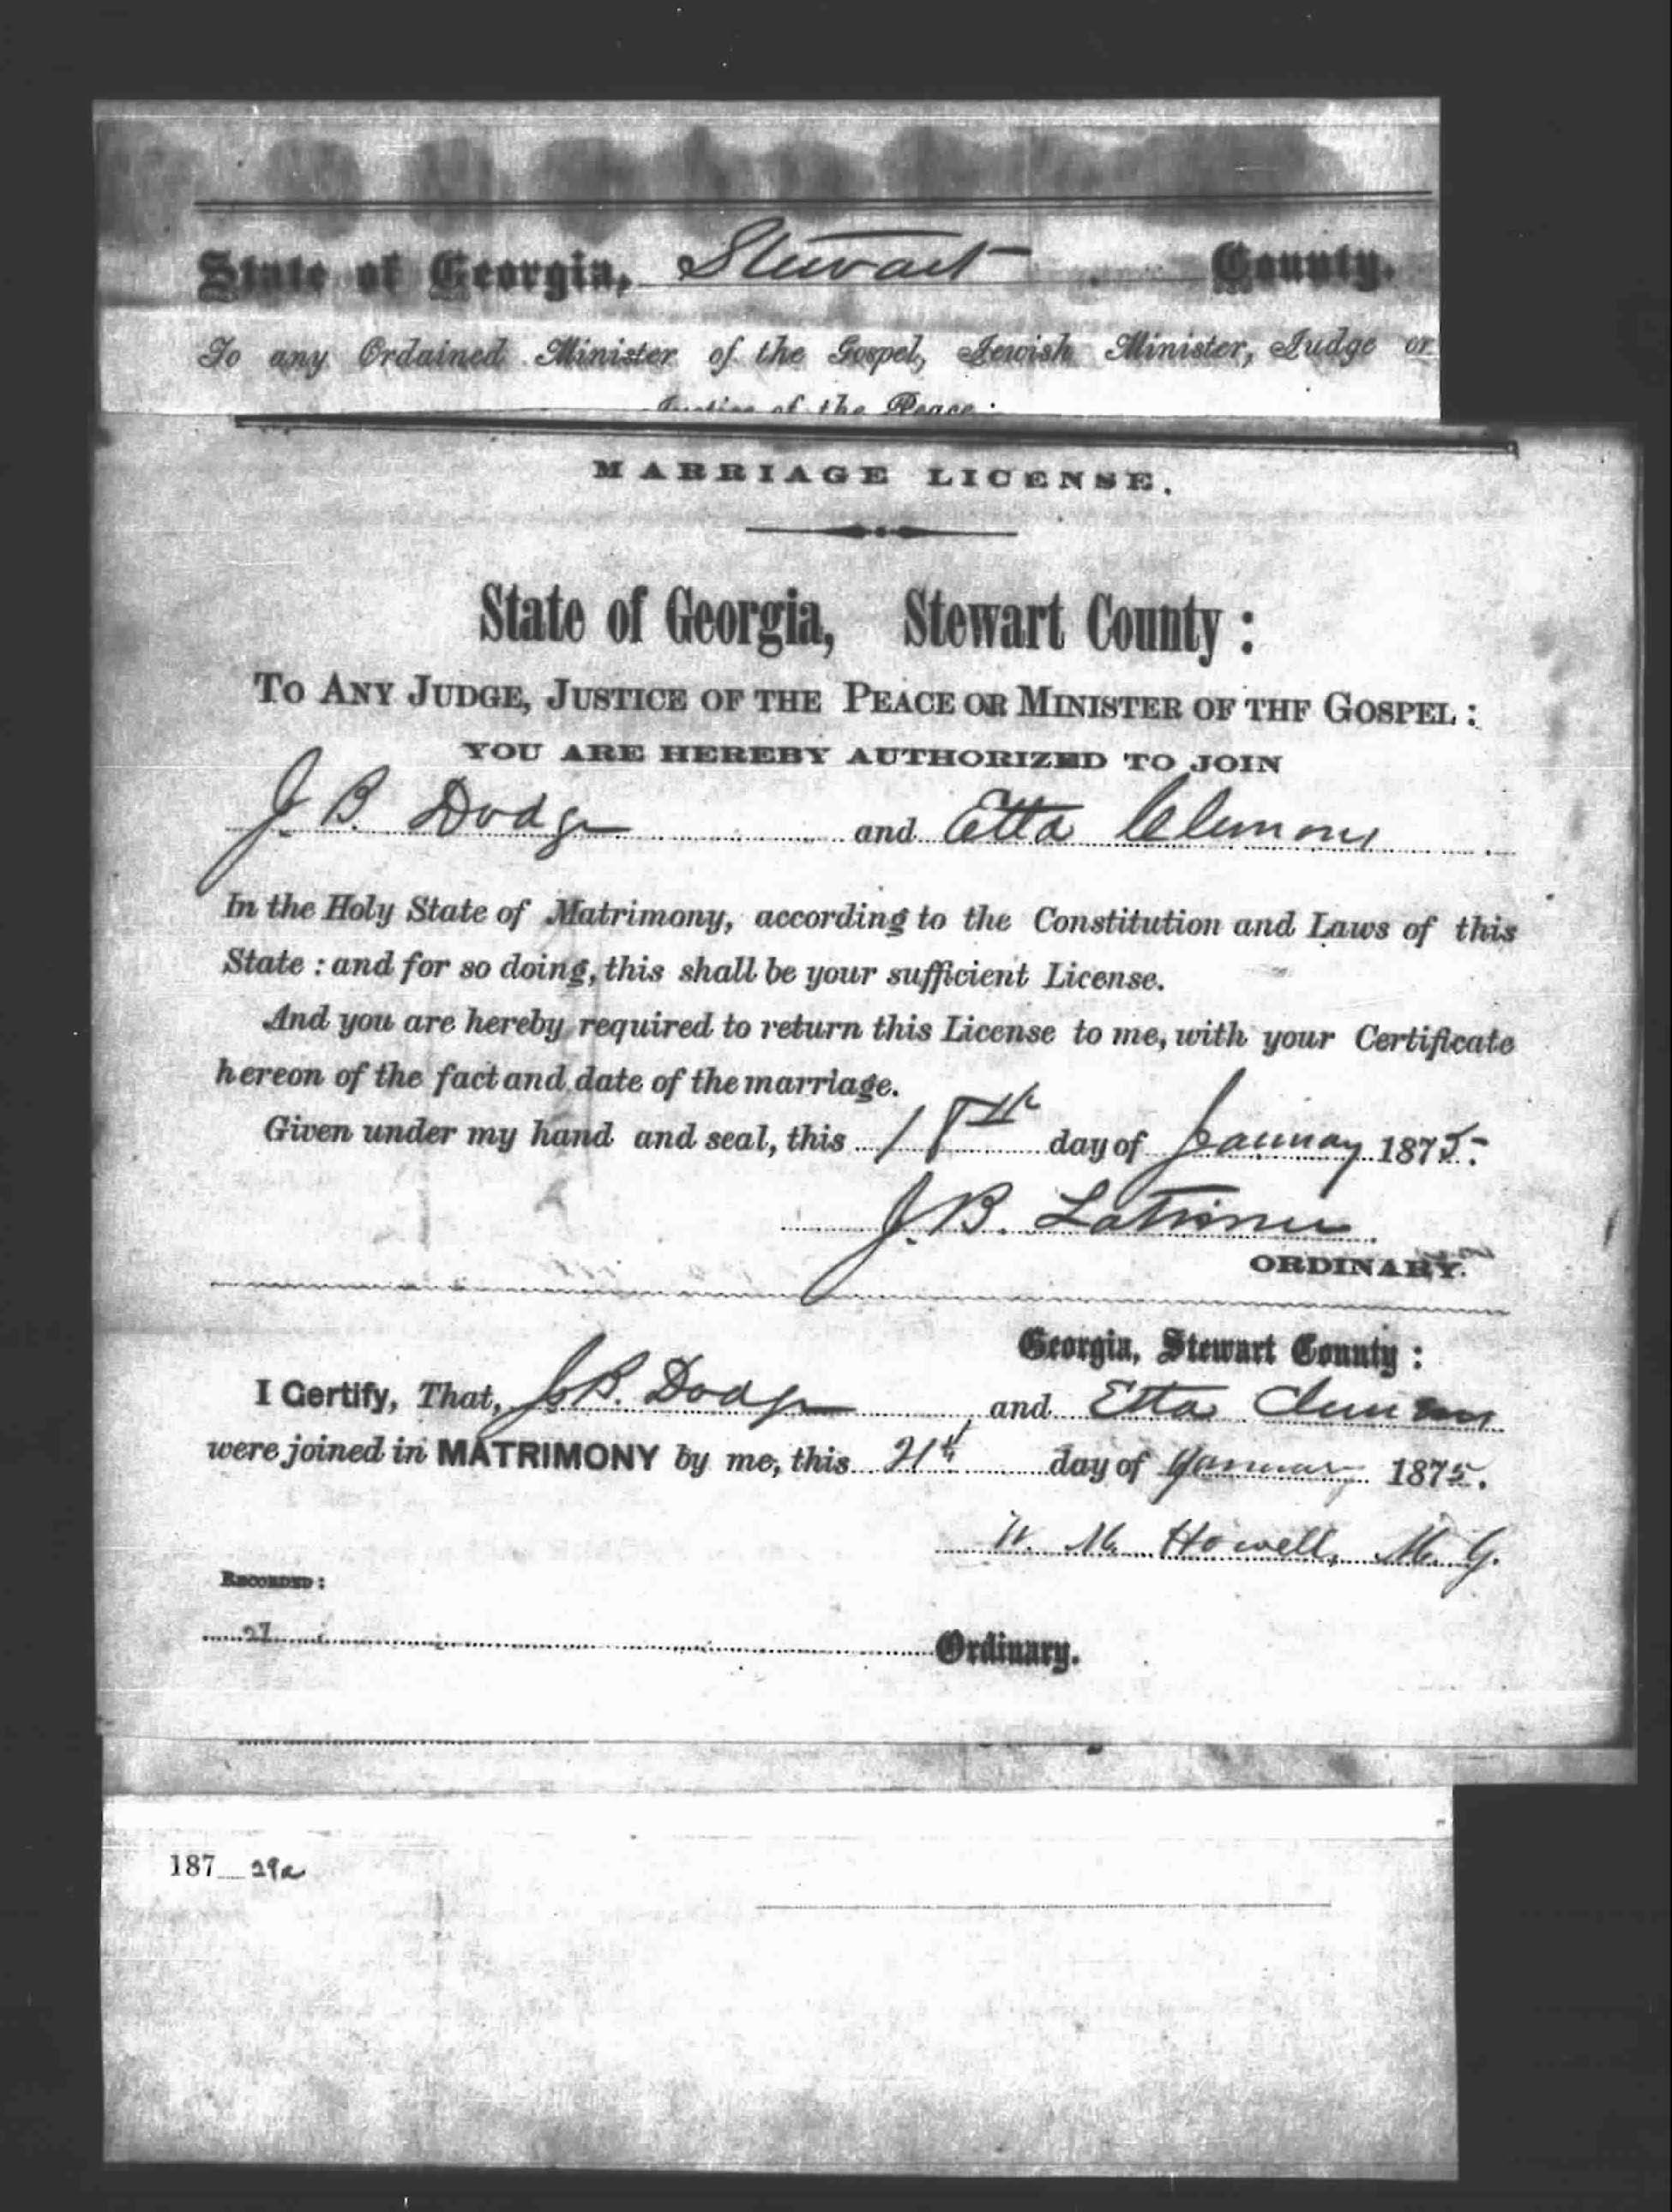 State of Georgia, Stewart County.
To any Ordained Minister of the Gospel, Jewish Minister, Judge or
Justice of the Peace:
MARRIAGE LICENSE.
State of Georgia, Stewart County:
TO ANY JUDGE, JUSTICE OF THE PEACE OR MINISTER OF THE GOSPEL:
YOU ARE HEREBY AUTHORIZED TO JOIN
J. B. Dodge and Etta Clemons
In the Holy State of Matrimony, according to the Constitution and Laws of this
State: and for so doing, this shall be your sufficient License.
And you are hereby required to return this License to me, with your Certificate
hereon of the fact and date of the marriage.
Given under my hand and seal, this 18th day of January 1875.
J. B. Latimer
ORDINARY.
Georgia, Stewart County:
I Certify, That, J. B. Dodge and Etta Clemons
were joined in MATRIMONY by me, this 21st day of January 1875.
W. M. Howell, M. G.
RECORDED:
27 Ordinary.
187 29a